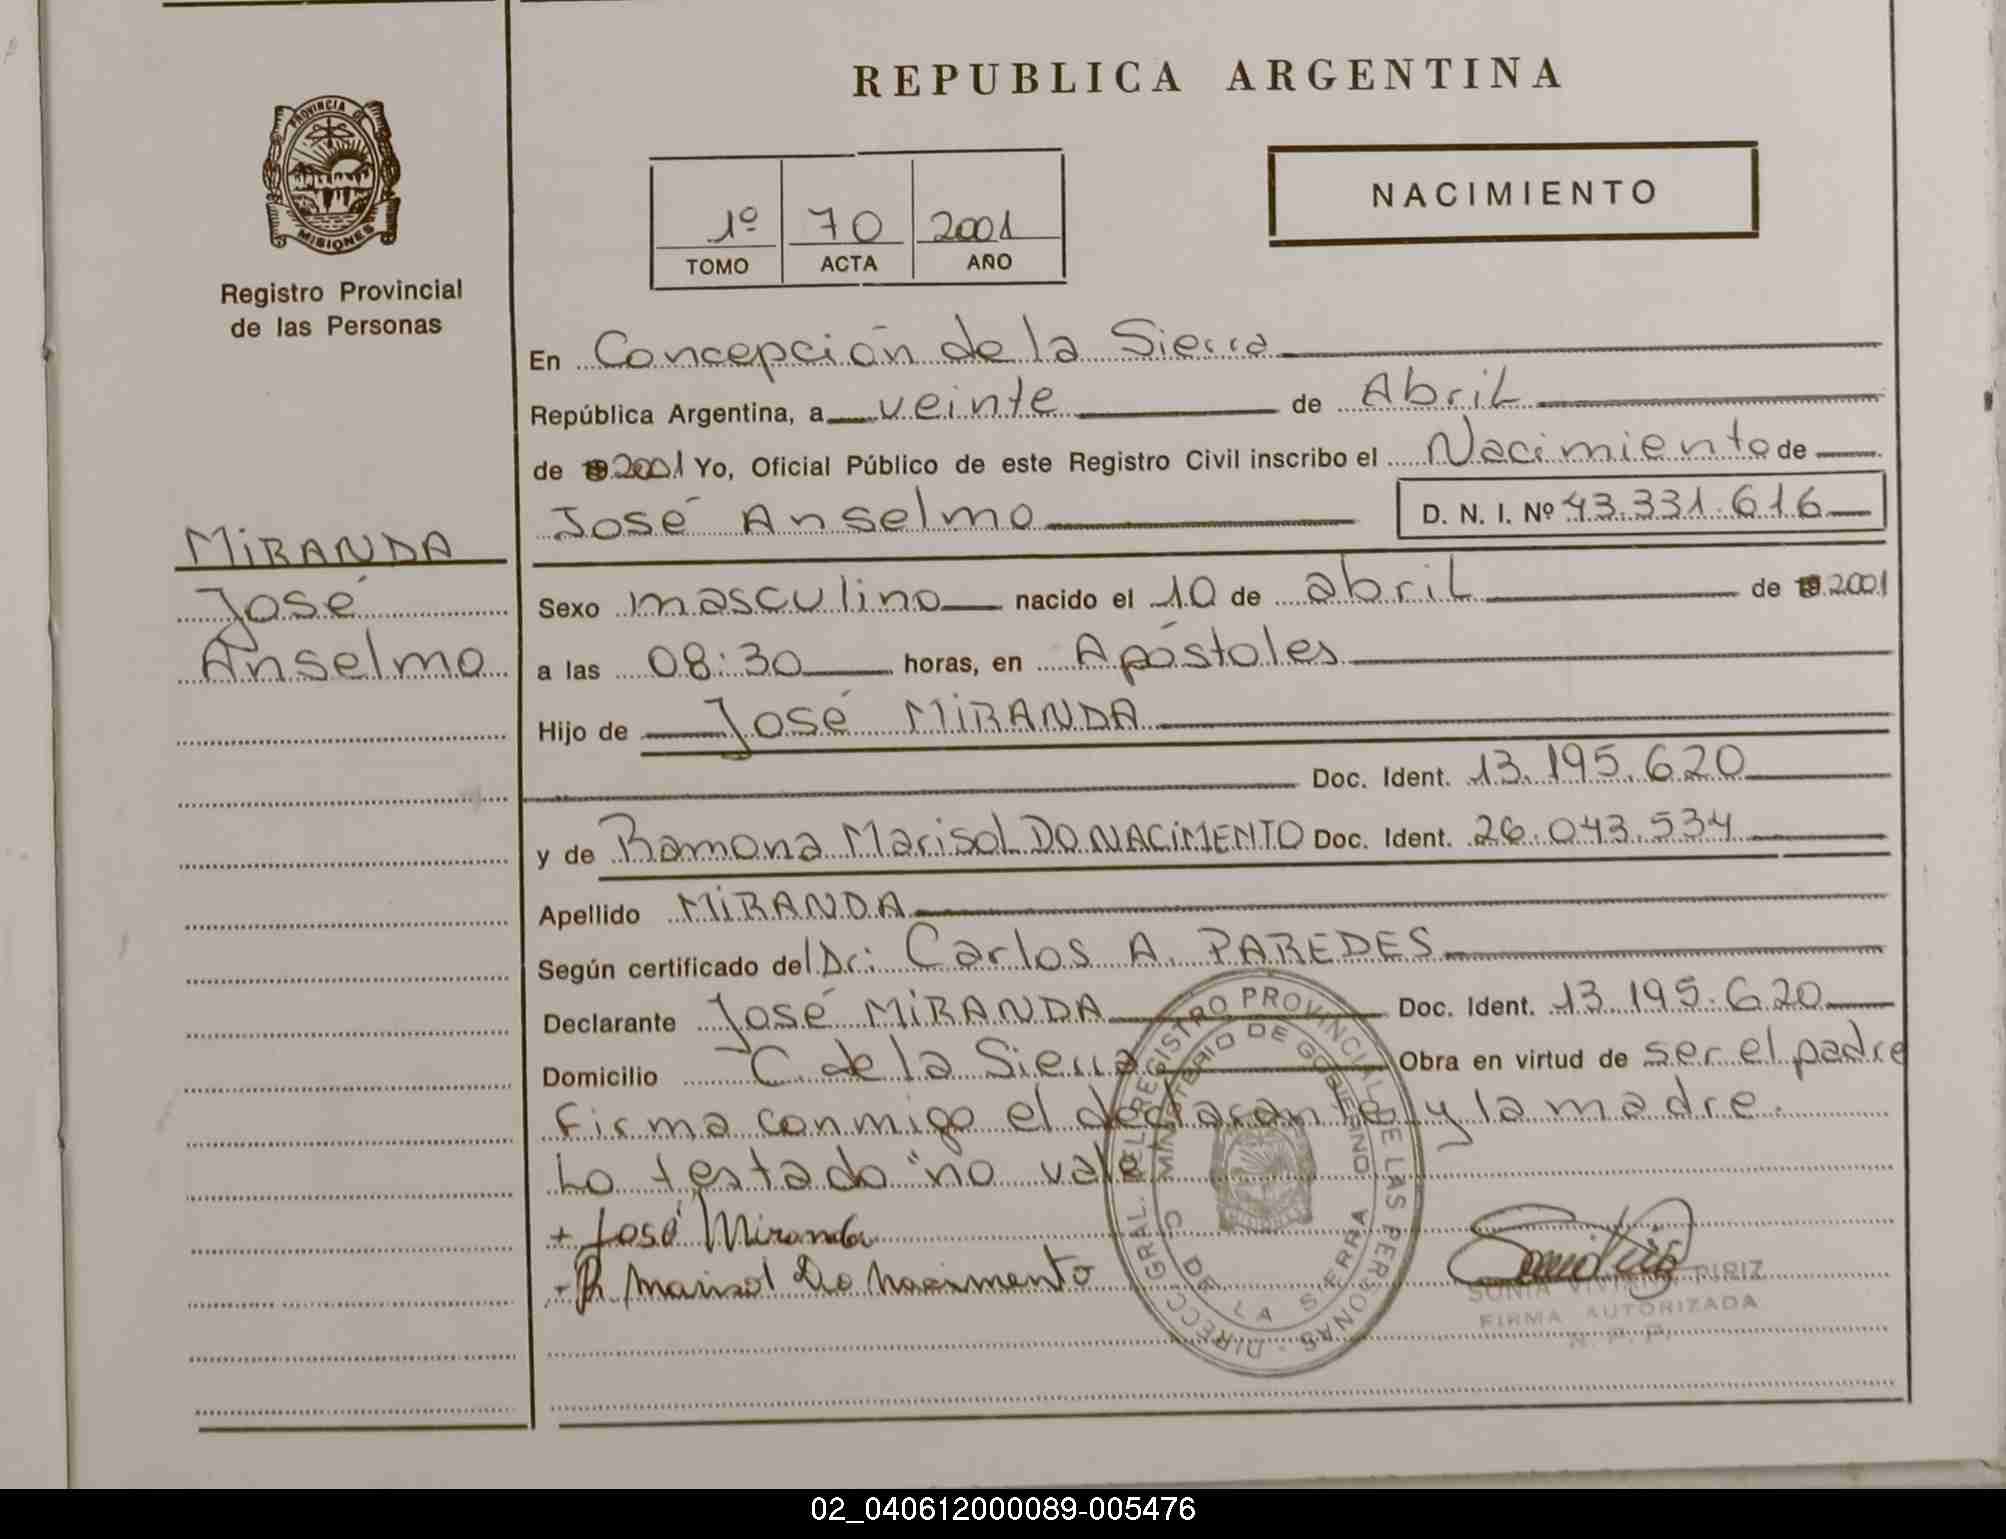 REPUBLICA ARGENTINA
PROVINCIA DE
MISIONES
Registro Provincial
de las Personas
NACIMIENTO
1º 70 2001
TOMO ACTA AÑO
En Concepción de la Sierra
República Argentina, a veinte de Abril
de 2001 Yo, Oficial Público de este Registro Civil inscribo el Nacimiento de
José Anselmo D. N. I. Nº 43.331.616
MIRANDA
José
Anselmo
Sexo masculino nacido el 10 de abril de 2001
a las 08:30 horas, en Apóstoles
Hijo de José MIRANDA
Doc. Ident. 13.195.620
y de Ramona Marisol DO NACIMENTO Doc. Ident. 26.043.534
Apellido MIRANDA
Según certificado del Dr: Carlos A. PAREDES
Declarante José MIRANDA Doc. Ident. 13.195.620
Domicilio C. de la Sierra Obra en virtud de ser el padre
Firma conmigo el declarante y la madre.
Lo testado "no vale"
+ José Miranda
+ R. Marisol Do Nacimento
DIRECC. GRAL. DEL REGISTRO PROVINCIAL DE LAS PERSONAS
MINISTERIO DE GOBIERNO
C. DE LA SIERRA
SONIA PIRIZ
FIRMA AUTORIZADA
02_040612000089-005476